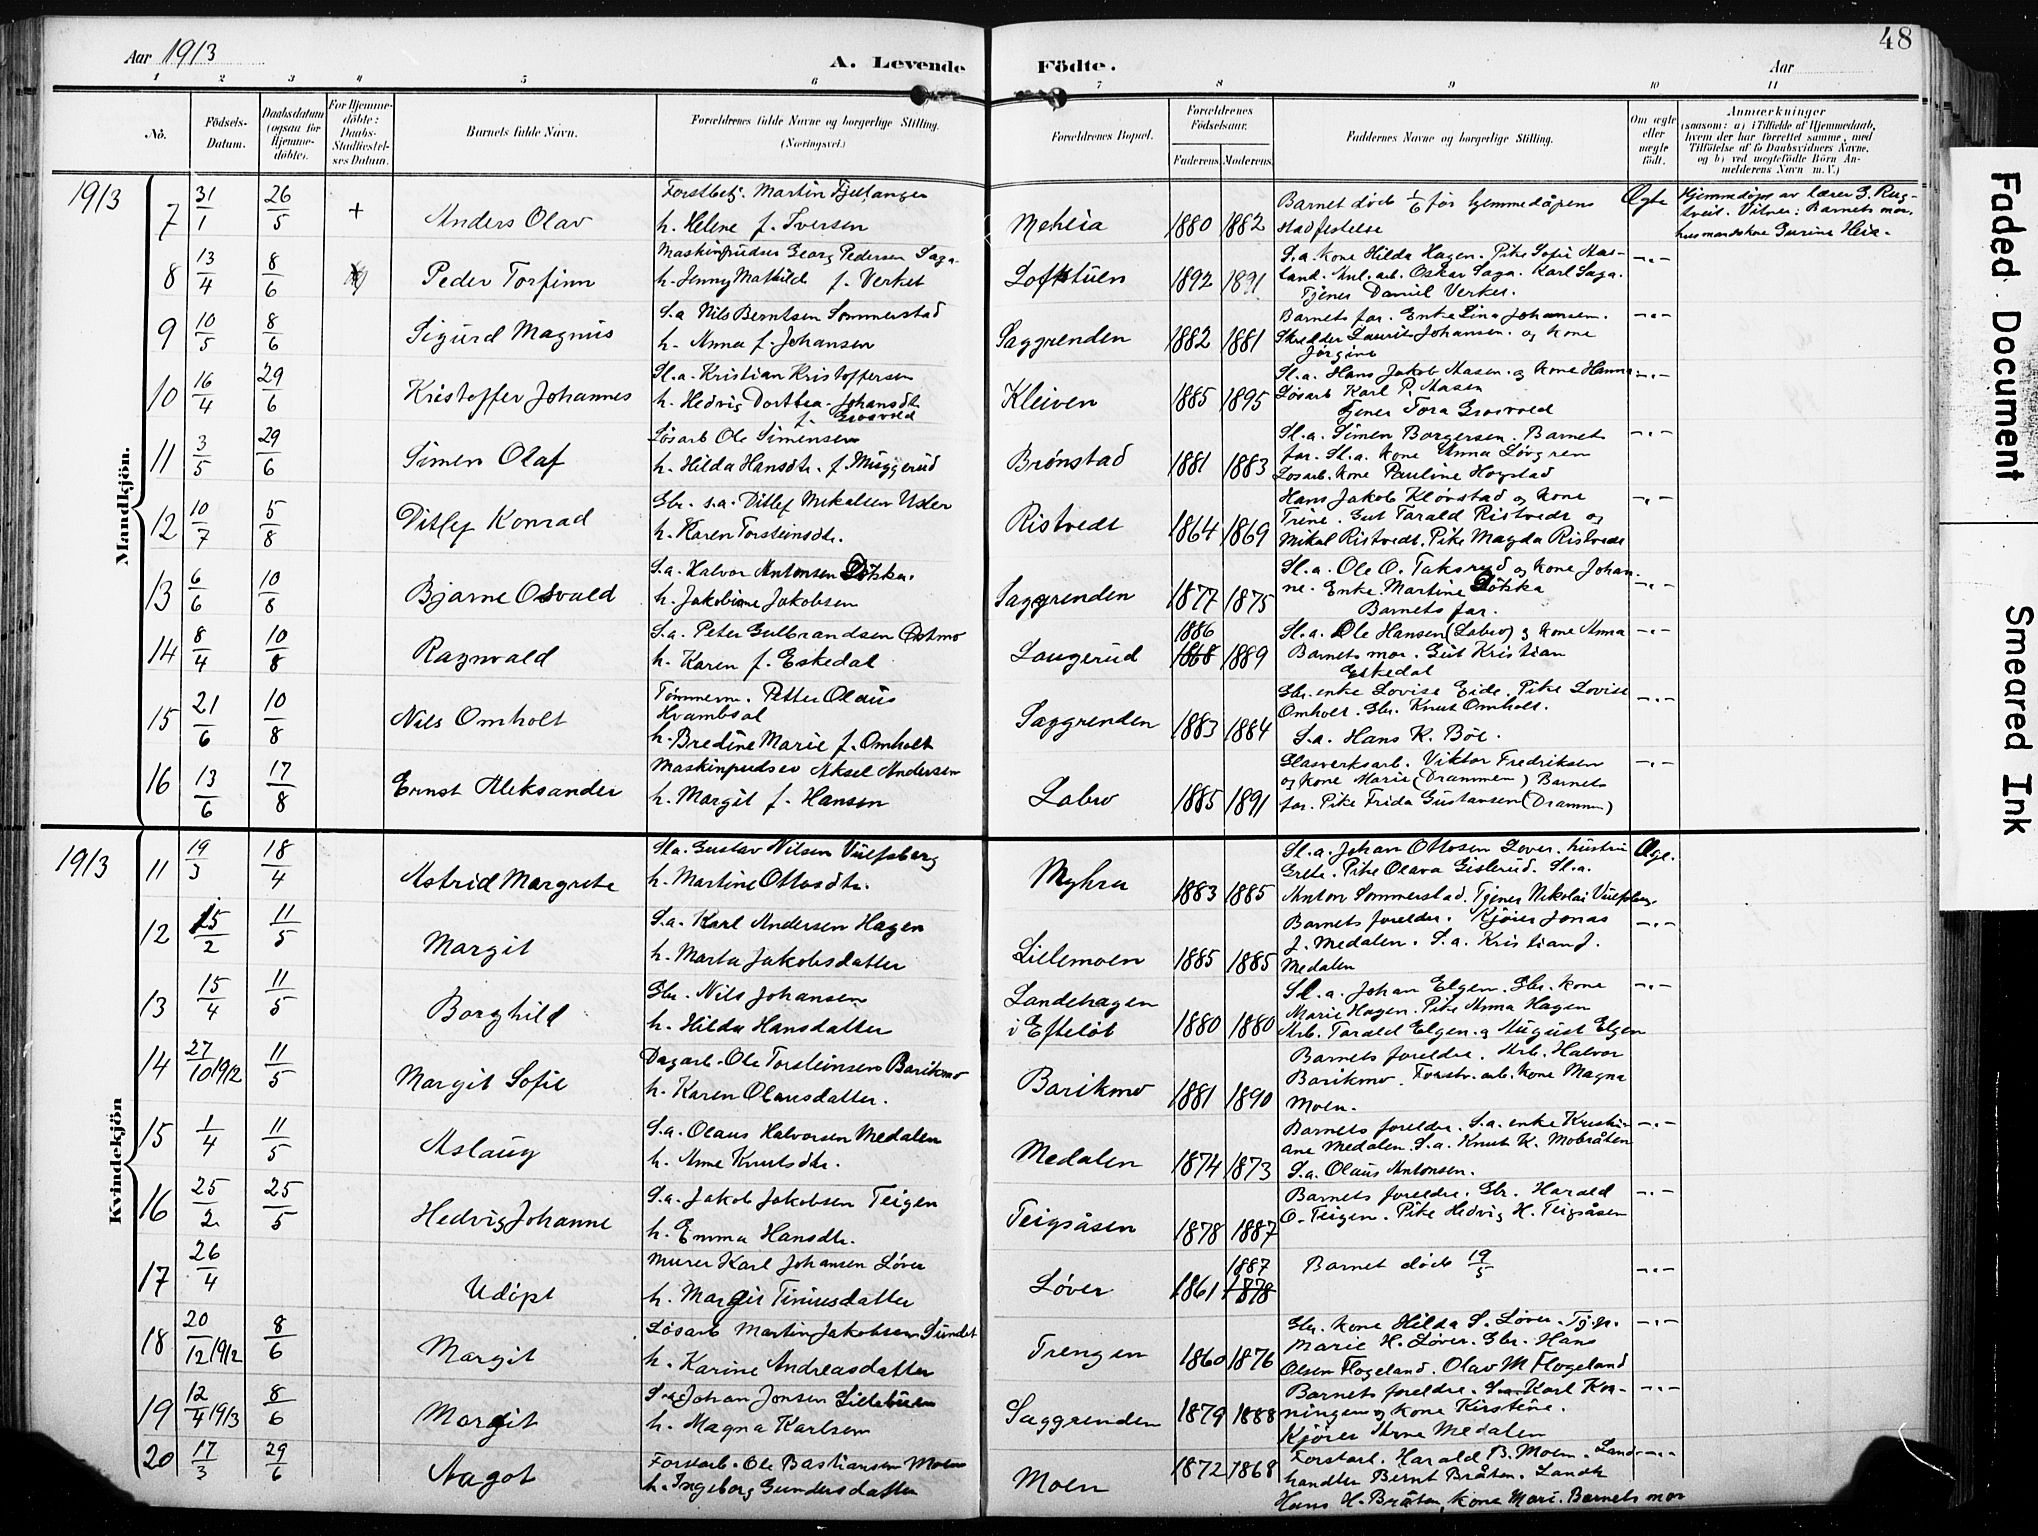 Aar 1913
A. Levende Födte.
Aar
48
1 2 3 4 5 6 7 8 9 10 11
No.
Födsels-Datum.
Daabsdatum (ogsaa for Hjemme-döbte).
For Hjemme-döbte: Daabs-Stadfæstelses Datum.
Barnets fulde Navn.
Forældrenes fulde Navne og borgerlige Stilling. (Næringsvei.)
Forældrenes Bopæl.
Forældrenes Födselsaar.
Faderens. Moderens.
Faddernes Navne og borgerlige Stilling.
Om ægte eller uægte födt.
Anmærkninger
(saasom: a) i Tilfælde af Hjemmedaab, hvem der har forrettet samme, med Tilföielse af to Daabsvidners Navne, og b) ved uægtefödte Börn Anmelderens Navn m. V.)
Mandkjön.
1913
7 31/1 26/5 + Anders Olav
Forstbetj. Martin Fjellanger
h. Helene f. Iversen
Meheia 1880 1882
Barnet död 1/6 för hjemmedåpens
stadfestelse
Ægte
Hjemmedöpt av lærer G. Rug-
tveit. Vitner: Barnets mor,
husmandskone Gurine Heia.
8 13/4 8/6 Peder Torfinn
Maskinpudser Georg Pedersen Saga
h. Jenny Mathilde f. Verket
Loftstuen 1892 1891
S.a. kone Hilda Hagen. Pike Sofie Aas-
land. Anl. arb. Oskar Saga. Karl Saga.
Tjener Daniel Verket.
-"-
9 10/5 8/6 Sigurd Magnus
S.a Nils Berntsen Sommerstad
h. Anna f. Johansen
Saggrenden 1882 1881
Barnets far. Enke Lina Johansen.
Skredder Laurits Johansen. og kone
Jörgine
-"-
10 16/4 29/6 Kristoffer Johannes
Sl.a. Kristian Kristoffersen
h. Hedvig Dorthea Johansdtr.
f. Grosvold
Kleiven 1885 1895
Sl.a. Hans Jakob Aasen. og kone Hanna.
Lösarb Karl P. Aasen
Tjener Tora Grosvold
-"-
11 3/5 29/6 Simen Olaf
Lösarb Ole Simensen
h. Hilda Hansdtr. f. Muggerud
Brönstad 1881 1883
Sl.a. Simen Borgersen. Barnets
far. Sl.a. kone Anna Lövgren
Losarb. kone Pauline Hogstad
-"-
12 10/7 5/8 Ditlef Konrad
Gbr. s.a. Ditlef Mikalsen Uster
h. Karen Torsteinsdtr.
Ristvedt 1864 1869
Hans Jakob Klövstad og kone
Trine. Gut Tarald Ristvedt og
Mikal Ristvedt. Pike Magda Ristvedt
-"-
13 6/6 10/8 Bjarne Osvald
S.a. Halvor Antonsen Dötska.
h. Jakobine Jakobsen
Saggrenden 1877 1875
Sl.a. Ole O. Taksrud og kone Johan-
ne. Enke Martine Dötska
Barnets far.
-"-
14 8/4 10/8 Ragnvald
S.a. Peter Gulbrandsen Östmo
h. Karen f. Eskedal
Laugerud 1886 1868 1889
Sl.a. Ole Hansen (Labro) og kone Anna
Barnets mor. Gut Kristian
Eskedal
-"-
15 21/6 10/8 Nils Omholt
Tömmerm. Petter Olaus
Hvambsal
h. Bredine Marie f. Omholt
Saggrenden 1883 1884
Gbr. enke Lovise Eide. Pike Lovise
Omholt. Gbr. Knut Omholt.
S.a. Hans K. Böe.
-"-
16 13/6 17/8 Ernst Aleksander
Maskinpudser Aksel Andersen
h. Margit f. Hansen
Labro 1885 1891
Glasverksarb. Viktor Fredriksen
og kone Marie (Drammen) Barnets
far. Pike Frida Gustavsen (Drammen)
-"-
Kvindekjön
1913
11 19/3 18/4 Astrid Margrete
Sl.a. Gustav Nilsen Vulfsberg
h. Martine Ottosdtr.
Myhra 1883 1885
Sl.a. Johan Ottosen Lover. hustru
Grete. Pike Olava Gislerud. Sl.a.
Anton Sommerstad. Tjener Nikolai Vulfsberg.
Ægt.
12 15/2 11/5 Margit
S.a. Karl Andersen Hagen
h. Marta Jakobsdatter
Lillemoen 1885 1885
Barnets foreldre. Kjörer Jonas
J. Medalen. S.a. Kristian J.
Medalen
-"-
13 15/4 11/5 Borghild
Gbr. Nils Johansen
h. Hilda Hansdatter
Landehagen
i Efteløt 1880 1880
Sl.a. Johan Elgen. Gbr. kone
Marie Hagen. Pike Anna Hagen
Arb. Tarald Elgen. og August Elgen
-"-
14 27/10 1912 11/5 Margit Sofie
Dagarb. Ole Torsteinsen Barikmo
h. Karen Olausdatter.
Barikmo 1881 1890
Barnets foreldre. Arb. Halvor
Barikmo. Forstv. arb. kone Magna
Moen.
15 1/4 11/5 Aslaug
S.a. Olaus Halvorsen Medalen
h. Anne Knutsdtr.
Medalen 1874 1873
Barnets foreldre. S.a. enke Kristi-
ane Medalen. S.a. Knut K. Mobråten
S.a. Olaus Antonsen.
-"-
16 25/2 25/5 Hedvig Johanne
S.a. Jakob Jakobsen Teigen
h. Emma Hansdtr.
Teigsåsen 1878 1887
Barnets foreldre. Gbr. Harald
O. Teigen. Pike Hedvig H. Teigsåsen
-"-
17 26/4 Udöpt
Murer Karl Johansen Löver
h. Margit Tiniusdatter
Löver 1861 1887 1878
Barnet död 19/5
-"-
18 20/12 1912 8/6 Margit
Lösarb Martin Jakobsen Sundet
h. Karine Andreasdatter
Trengen 1860 1876
Gbr. kone Hilda S. Löver. Tjp.
Marie H. Löver. Gbr. Hans
Olsen Flogeland. Olav M Flogeland
-"-
19 12/4 1913 8/6 Margit
S.a. Johan Jonsen Lillebuen
h. Magna Karlsen
Saggrenden 1879 1888
Barnets foreldre. S.a. Karl Kor-
ningen og kone Kirstine.
Kjörer Arne Medalen
-"-
20 17/3 29/6 Aagot
Forstarb. Ole Bastiansen Moen
h. Ingeborg Gundersdatter
Moen 1872 1868
Forstarb. Harald B. Moen. Land-
handler Bernt Bråten. Landh
Hans H. Bråten, kone Mari. Barnets mor
-"-
Faded Document
Smeared Ink